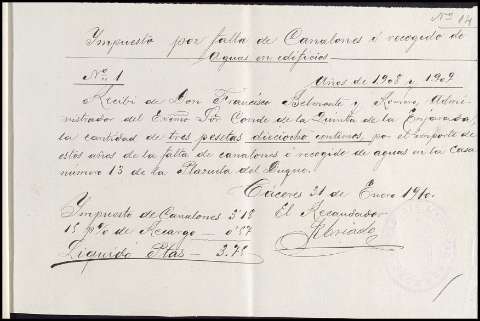 Nº 14
Impuesto por falta de Canalones é recogido de
aguas en edificios
Nº 1 Años de 1908 y 1909
Recibí de Don Francisco Belmonte y Romero, Admi-
nistrador del Excmo Sor Conde de la Quinta de la Enjarada,
la cantidad de tres pesetas dieciocho centimos, por el importe de
estos años de la falta de canalones é recogido de aguas en la casa
numero 13 de la Plazuela del Duque.
Cáceres 21 de Enero 1910.
Impuesto de Canalones 3'18 El Recaudador
18 p% de Recargo — 0'57
Liquido Ptas — 3.75